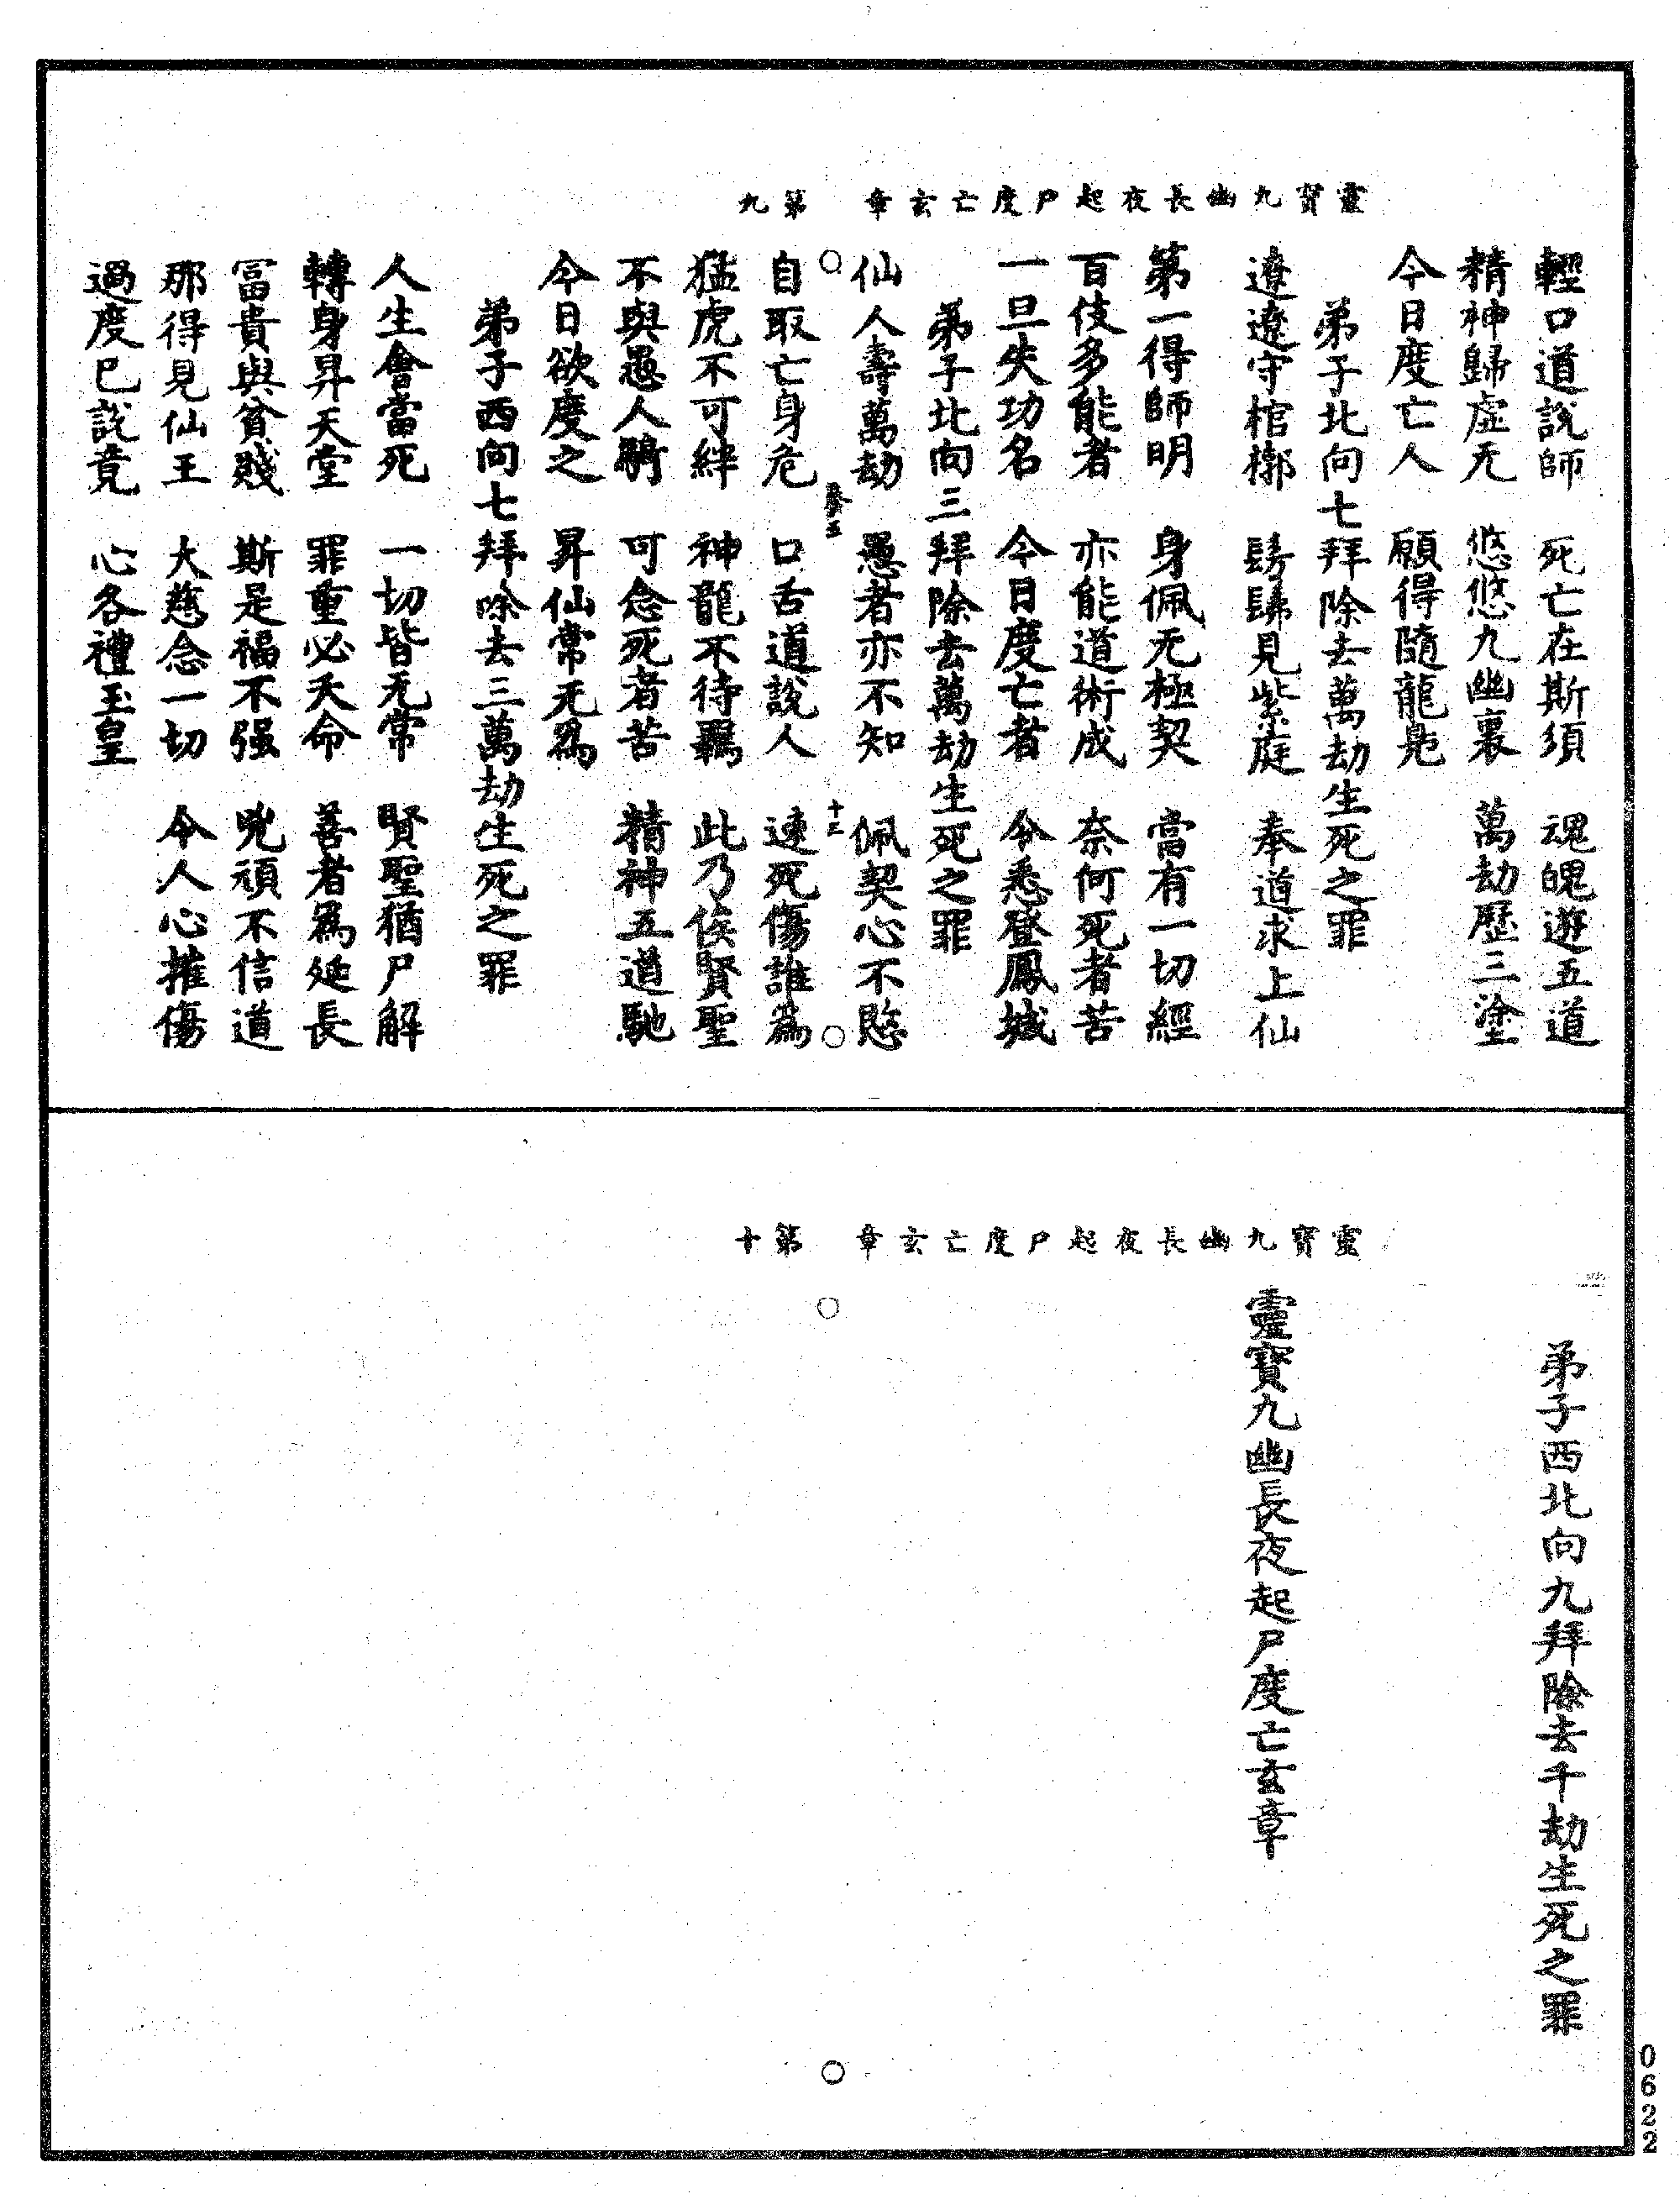 靈寶九幽長夜起尸度亡玄章 第九
輕口道說師 死亡在斯須 魂魄遊五道
精神歸虛无 悠悠九幽裏 萬劫歷三塗
今日度亡人 願得隨龍鳧
弟子北向七拜除去萬劫生死之罪
遼遼守棺槨 髣髴見紫庭 奉道求上仙
第一得師明 身佩无極契 當有一切經
百伎多能者 亦能道術成 奈何死者苦
一旦失功名 今日度亡者 令悉登鳳城
弟子北向三拜除去萬劫生死之罪
仙人壽萬劫 愚者亦不知 佩契心不愍
十三
自取亡身危 口舌道說人 速死傷誰為
猛虎不可絆 神龍不待羈 此乃俟賢聖
不與愚人騎 可念死者苦 精神五道馳
今日欲度之 昇仙常无為
弟子西向七拜除去三萬劫生死之罪
人生會當死 一切皆无常 賢聖猶尸解
轉身昇天堂 罪重必夭命 善者為延長
富貴與貧賤 斯是福不强 兇頑不信道
那得見仙王 大慈念一切 令人心摧傷
過度已說竟 心各禮玉皇
靈寶九幽長夜起尸度亡玄章 第十
弟子西北向九拜除去千劫生死之罪
靈寶九幽長夜起尸度亡玄章
0622